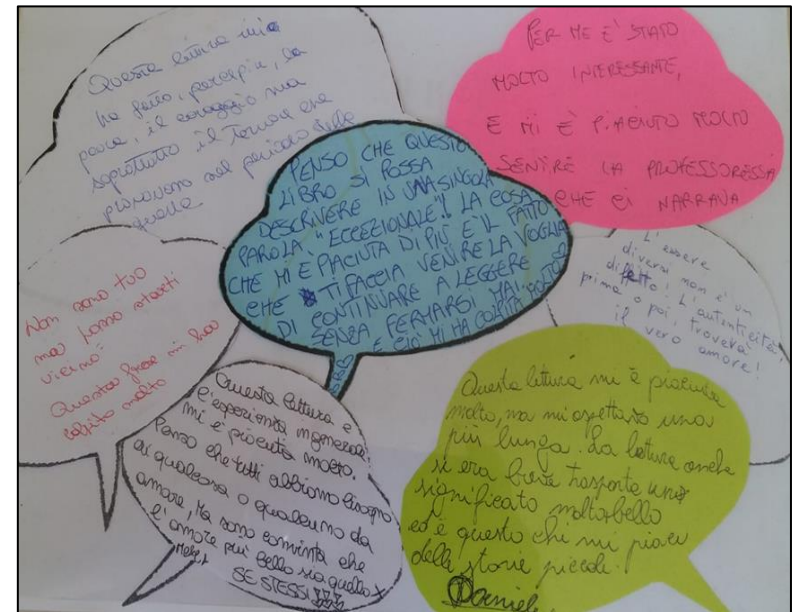 Questa lettura mi
ha fatto, percepire, la
paura, il coraggio ma
soprattutto il terrore che
provavano nel periodo della
guerra
PER ME E' STATO
MOLTO INTERESSANTE,
E MI È PIACIUTO MOLTO
SENTIRE LA PROFESSORESSA
CHE CI NARRAVA
PENSO CHE QUESTO
LIBRO SI POSSA
DESCRIVERE IN UNA SINGOLA
PAROLA "ECCEZIONALE"! LA COSA
CHE MI È PIACIUTA DI PIÙ È IL FATTO
CHE TI FACCIA VENIRE LA VOGLIA
DI CONTINUARE A LEGGERE
SENZA FERMARSI MAI
E CIÒ MI HA COLPITA MOLTO
Non sono tuo
ma posso starti
vicino"
Questa frase mi ha
colpito molto
L'essere
diversi non è un
difetto! L'autenticità,
prima o poi, troverà
il vero amore!
Questa lettura e
l'esperienza in generale
mi è piaciuta molto.
Penso che tutti abbiamo bisogno
di qualcosa o qualcuno da
amare, Ma sono convinta che
l'amore più bello sia quello x
SE STESSI
Questa lettura mi è piaciuta
molto, ma mi aspettavo una
più lunga. La lettura anche
si era breve trasporta uno
significato molto bello
ed è questo chi mi piace
delle storie piccole.
Daniele